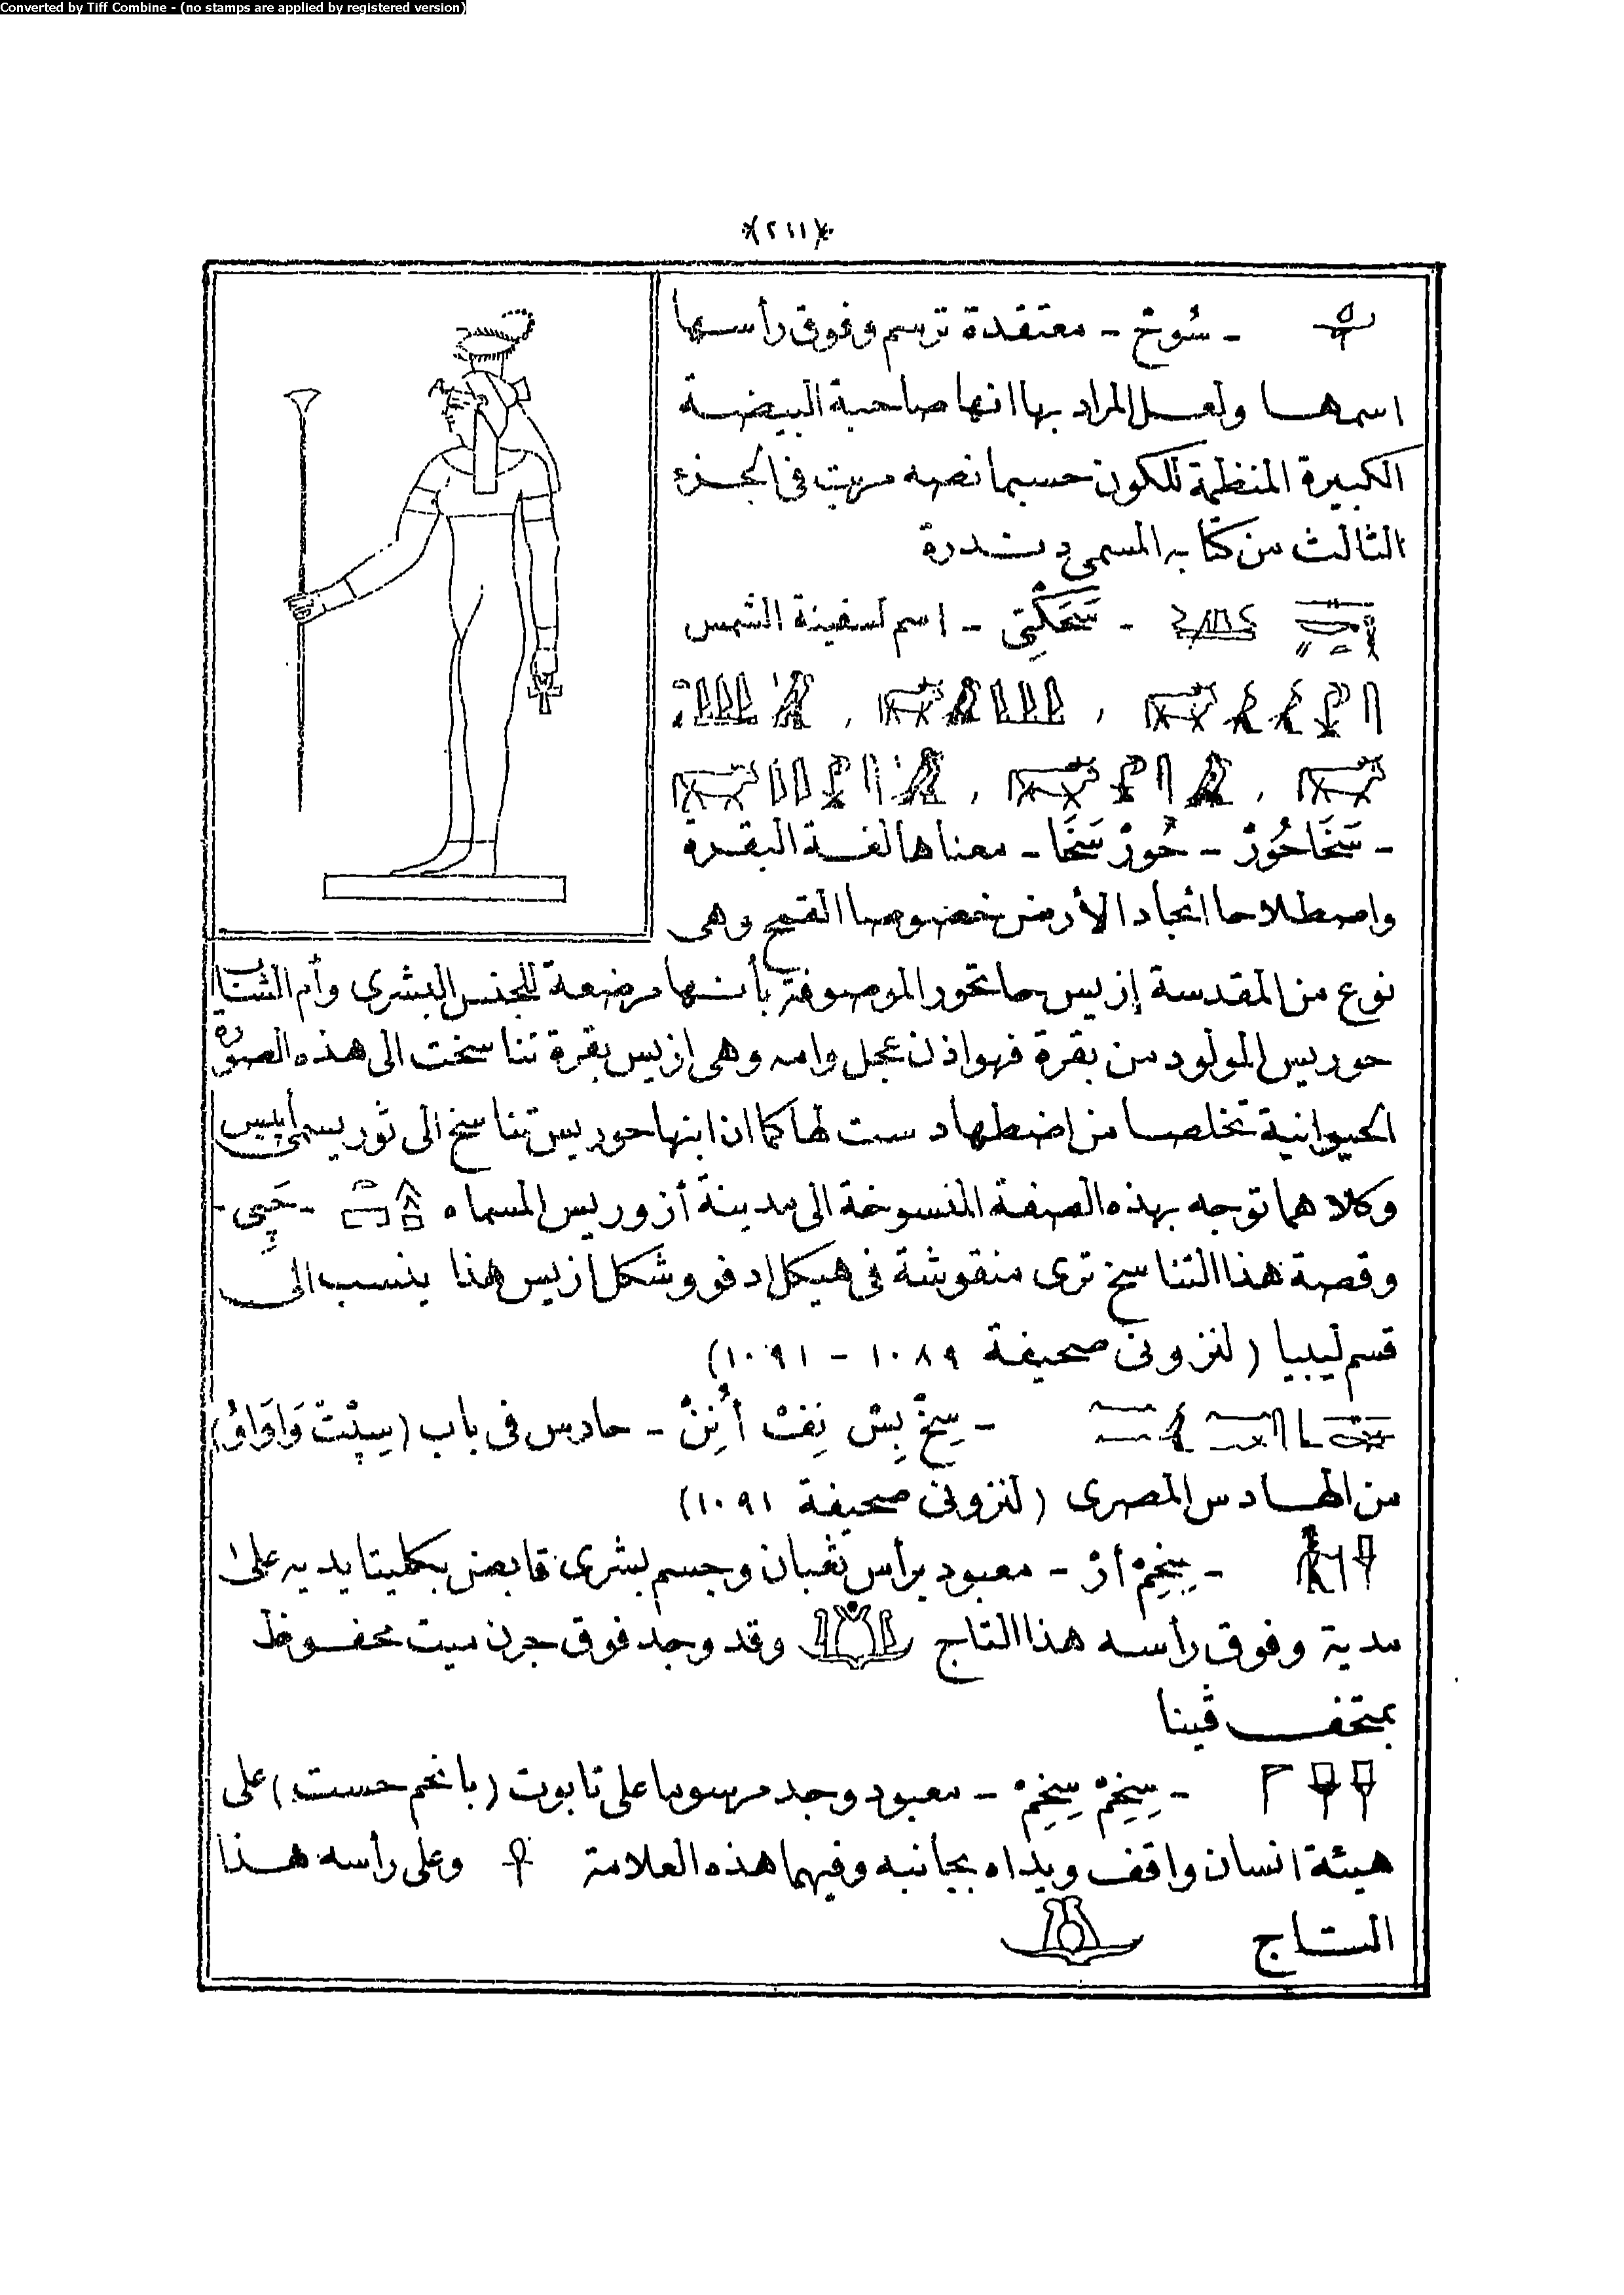 Converted by Tiff Combine - (no stamps are applied by registered version)
﴿٢١١﴾
- سُوخ - معتقدة ترسم وفوق رأسها
اسمها ولعل المراد بها انها صاحبة البيضة
الكبيرة المنظمة للكون حسبما نصه مريت في الجزء
الثالث من كتابه المسمى دندرة
- سَحَكْتِى - اسم لسفينة الشمس
- سَخَاحُورْ - حُورْ سَخَا - معناها لغة البقرة
واصطلاحا اتحاد الأرض خصوصا القمح وهى
نوع من المقدسة إزيس حاتحور الموصوفة بأنها مرضعة للجنس البشرى وأم الشاب
حوريس المولود من بقرة فهو اذن عجل وامه وهى ازيس بقرة تناسخت الى هذه الصورة
الحيوانية تخلصا من اضطهاد ست لها كما ان ابنها حوريس تناسخ الى ثور يسمى أپيس
وكلاهما توجه بهذه الصفة المنسوخة الى مدينة أزوريس المسماه - حَپِى -
وقصة هذا التناسخ ترى منقوشة فى هيكل ادفو وشكل ازيس هذا ينسب الى
قسم ليبيا (لنزونى صحيفة ١٠٨٩ - ١٠٩١)
- سِخْ بِسْ نِفَتْ أُنِنْ - حادس فى باب (سِپْتْ وَاوَاوُ)
من الهادس المصرى (لنزونى صحيفة ١٠٩١)
- سِخِمْ أرْ - معبود برأس ثعبان وجسم بشرى قابض بكلتا يديه على
مدية وفوق رأسه هذا التاج وقد وجد فوق جرن ميت محفوظ
بمتحف ڤينا
- سِخِمْ سِخِمْ - معبود وجد مرسوما على تابوت (بانحم حست) على
هيئة انسان واقف ويداه بجانبه وفيهما هذه العلامة وعلى رأسه هذا
التاج